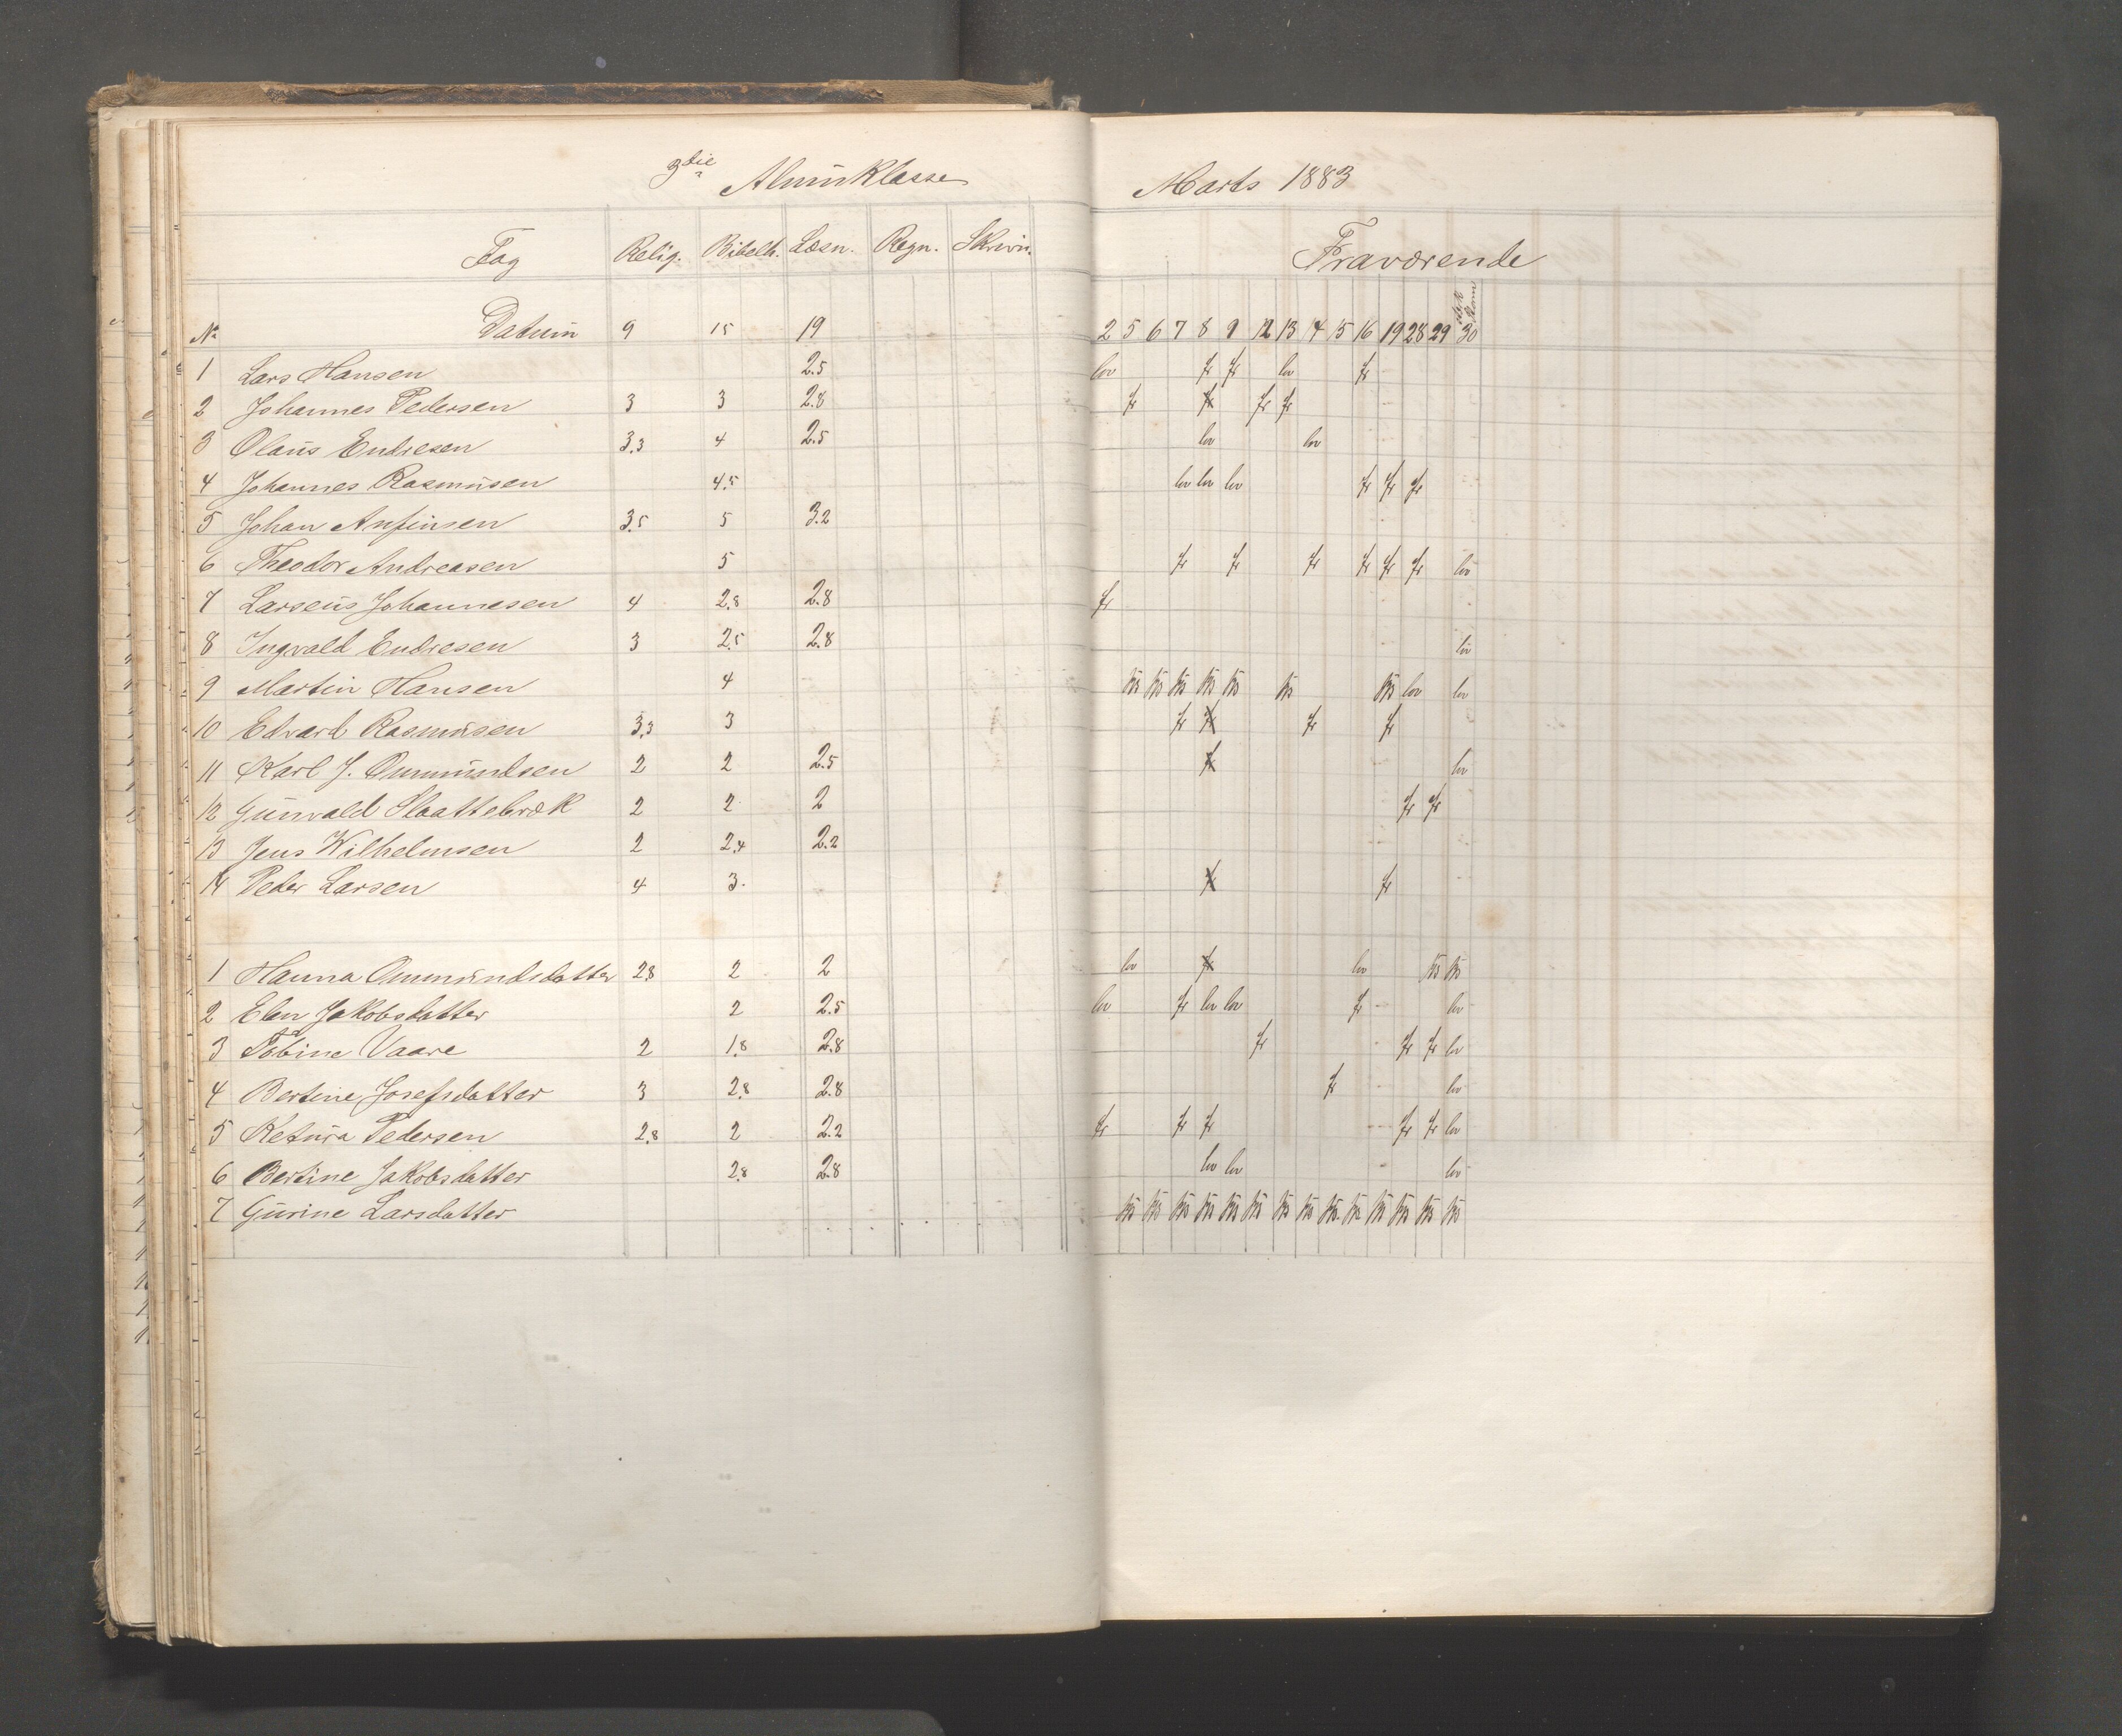 3die Almuklasse Marts 1883
Fag Relig. Bibelh. Læsn. Regn. Skrivn. Fraværende
No Datum 9 15 19 2 5 6 7 8 9 12 13 14 15 16 19 28 29 30
1 Lars Hansen 2.5 lov fr fr lov fr
2 Johannes Pedersen 3 3 2.8 fr fr fr fr
3 Olaus Endresen 3.3 4 2.5 lov lov
4 Johannes Rasmusen 4.5 lov lov lov fr fr fr
5 Johan Anfinsen 3.5 5 3.2
6 Theodor Andreasen 5 fr fr fr fr fr fr lov
7 Larseus Johannesen 4 2.8 2.8 fr
8 Ingvald Endresen 3 2.5 2.8 lov
9 Martin Hansen 4 lov lov
10 Edvard Rasmusen 3.3 3 fr fr fr fr
11 Karl J. Ommundsen 2 2 2.5 fr lov
12 Gunvald Slaattebræk 2 2 2 fr fr
13 Jens Wilhelmsen 2 2.4 2.2
14 Peder Larsen 4 3. fr fr
1 Hanna Ommundsdatter 2.8 2 2 lov fr lov
2 Elen Jakobsdatter 2 2.5 lov fr lov lov fr lov
3 Tobine Vaare 2 1.8 2.8 fr fr fr lov
4 Bertine Josefsdatter 3 2.8 2.8 fr lov
5 Ketura Pedersen 2.8 2 2.2 fr fr fr fr fr lov
6 Bertine Jakobsdatter 2.8 2.8 lov lov lov
7 Gurine Larsdatter